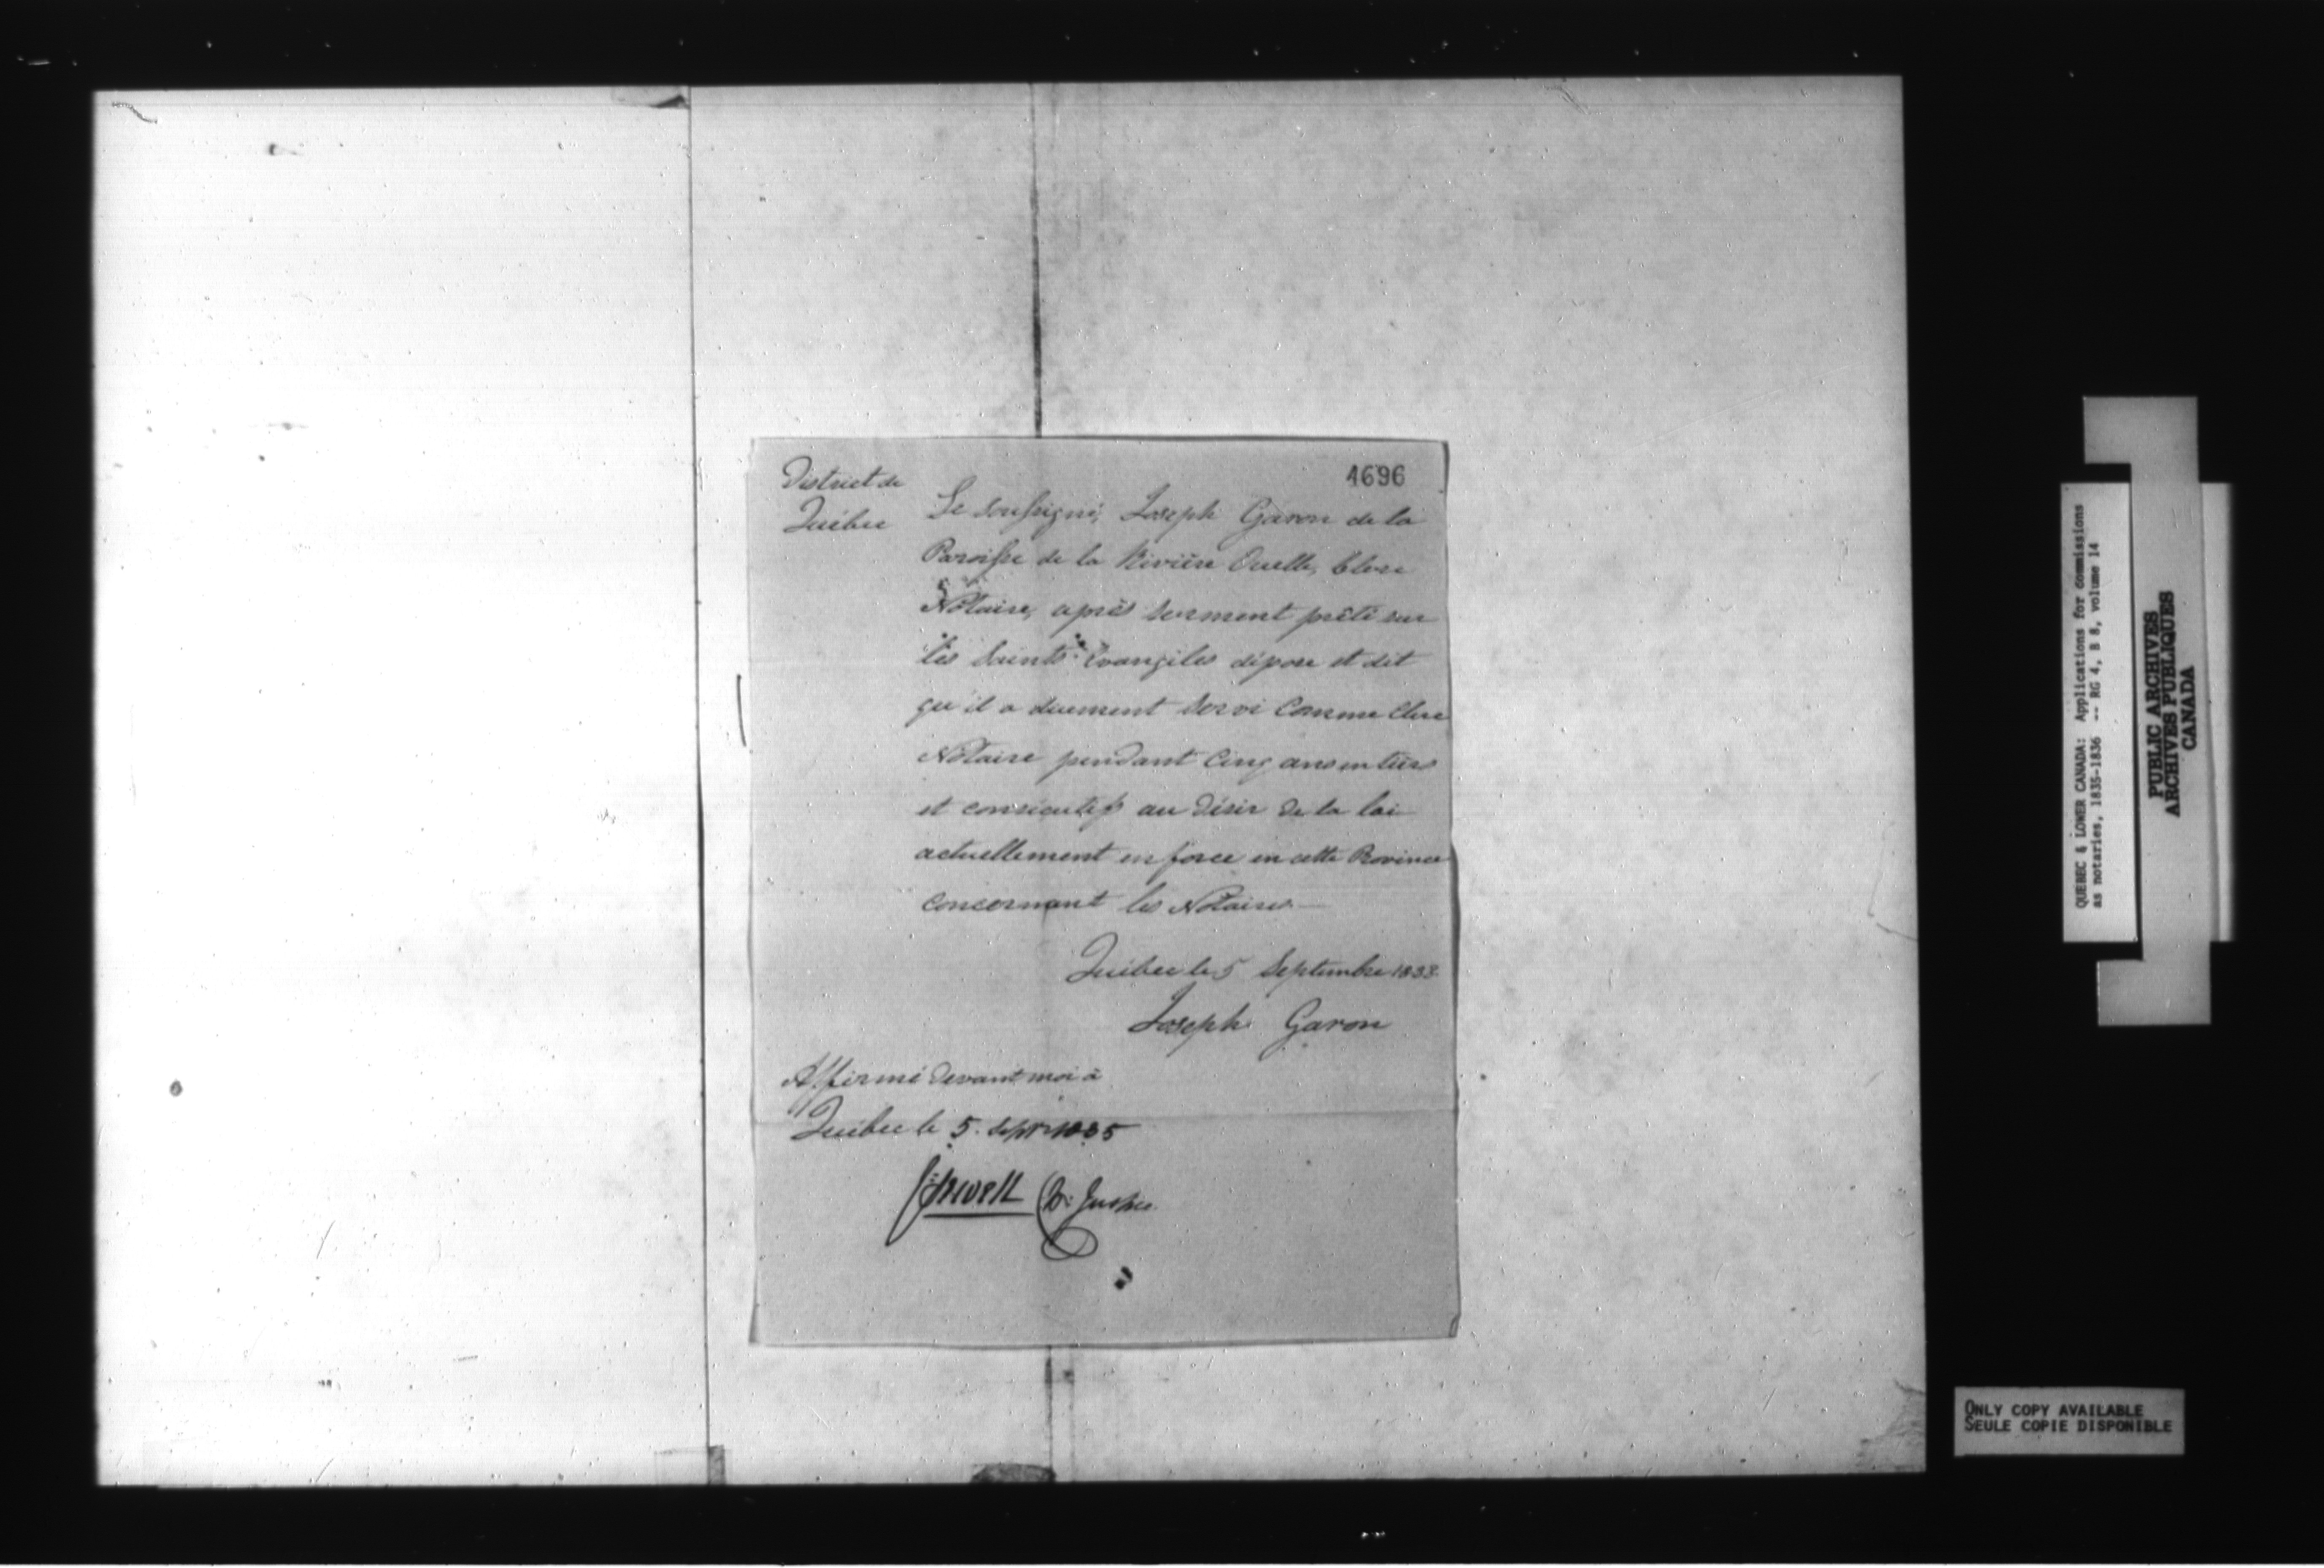 4696
District de
Québec
Le soussigné, Joseph Garon de la
Paroisse de la Rivière Ouelle, Clerc
Notaire, après serment prêté sur
les Saints Evangiles dépose et dit
qu'il a duement servi comme Clerc
Notaire pendant Cinq ans entiers
et consécutifs au désir de la loi
actuellement en force en cette Province
concernant les Notaires.—
Québec le 5 Septembre
Joseph Garon
Affirmé devant moi à
Québec le 5. Septr 1835
JSewell Ch: Justice.
QUEBEC & LOWER CANADA: Applications for commissions
as notaries, 1835-1836 -- RG 4, B 8, volume 14
PUBLIC ARCHIVES
ARCHIVES PUBLIQUES
CANADA
ONLY COPY AVAILABLE
SEULE COPIE DISPONIBLE